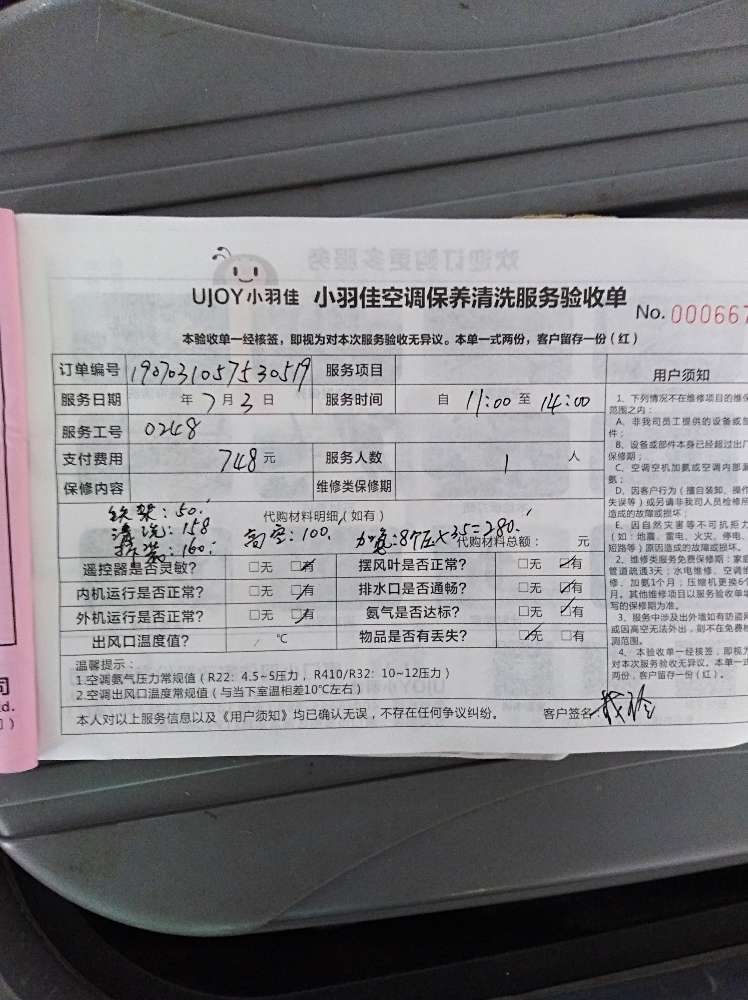 欢迎订购更多服务
UJOY小羽佳 小羽佳空调保养清洗服务验收单
No. 000667
本验收单一经核签，即视为对本次服务验收无异议。本单一式两份，客户留存一份（红）
订单编号 1907031057530519 服务项目
服务日期 年 7 月 3 日 服务时间 自 11:00 至 14:00
服务工号 0248
支付费用 748 元 服务人数 1 人
保修内容 维修类保修期
代购材料明细（如有）
铁架：50.
清洗：158
拆装：160.
高空：100.
加氨：8个压×35=280.
代购材料总额： 元
遥控器是否灵敏？ □无 □有 摆风叶是否正常？ □无 □有
内机运行是否正常？ □无 □有 排水口是否通畅？ □无 □有
外机运行是否正常？ □无 □有 氨气是否达标？ □无 □有
出风口温度值？ ℃ 物品是否有丢失？ □无 □有
温馨提示：
1.空调氨气压力常规值（R22：4.5~5压力，R410/R32：10~12压力）
2.空调出风口温度常规值（与当下室温相差10℃左右）
本人对以上服务信息以及《用户须知》均已确认无误，不存在任何争议纠纷。 客户签名：
用户须知
1、下列情况不在维修项目的维保
范围之内：
A、非我司员工提供的设备或部
件；
B、设备或部件本身已经超过出厂
保修期；
C、空调空机加氨或空调内部漏
氨；
D、因客户行为（擅自装卸、操作
失误等）或另请非我司人员检修所
造成的故障或损坏；
E、因自然灾害等不可抗拒力
（如：地震、雷电、火灾、停电、
短路等）原因造成的故障或损坏。
2、维修类服务免费保修期：家庭
管道疏通3天；水电维修、空调维
修、加氨1个月；压缩机更换6个
月。其他维修项目以服务验收单填
写的保修期为准。
3、服务中涉及出外墙如有防盗网
或因高空无法外出，则不在免费检
测范围。
4、本验收单一经核签，即视为
对本次服务验收无异议。本单一式
两份，客户留存一份（红）。
司
td.